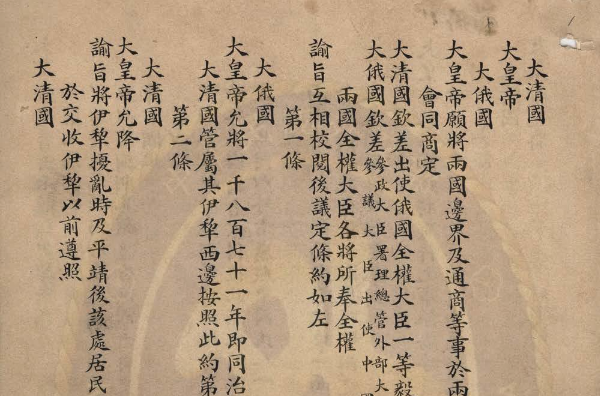 大清國
大皇帝
大俄國
大皇帝願將兩國邊界及通商等事於兩
會同商定
大清國欽差出使俄國全權大臣一等毅
大俄國欽差參政大臣署理總管外部大
參議大臣出使中國
兩國全權大臣各將所奉全權
諭旨互相校閱後議定條約如左
第一條
大俄國
大皇帝允將一千八百七十一年即同治
大清國管屬其伊犁西邊按照此約第
第二條
大清國
大皇帝允降
諭旨將伊犁擾亂時及平靖後該處居民
於交收伊犁以前遵照
大清國